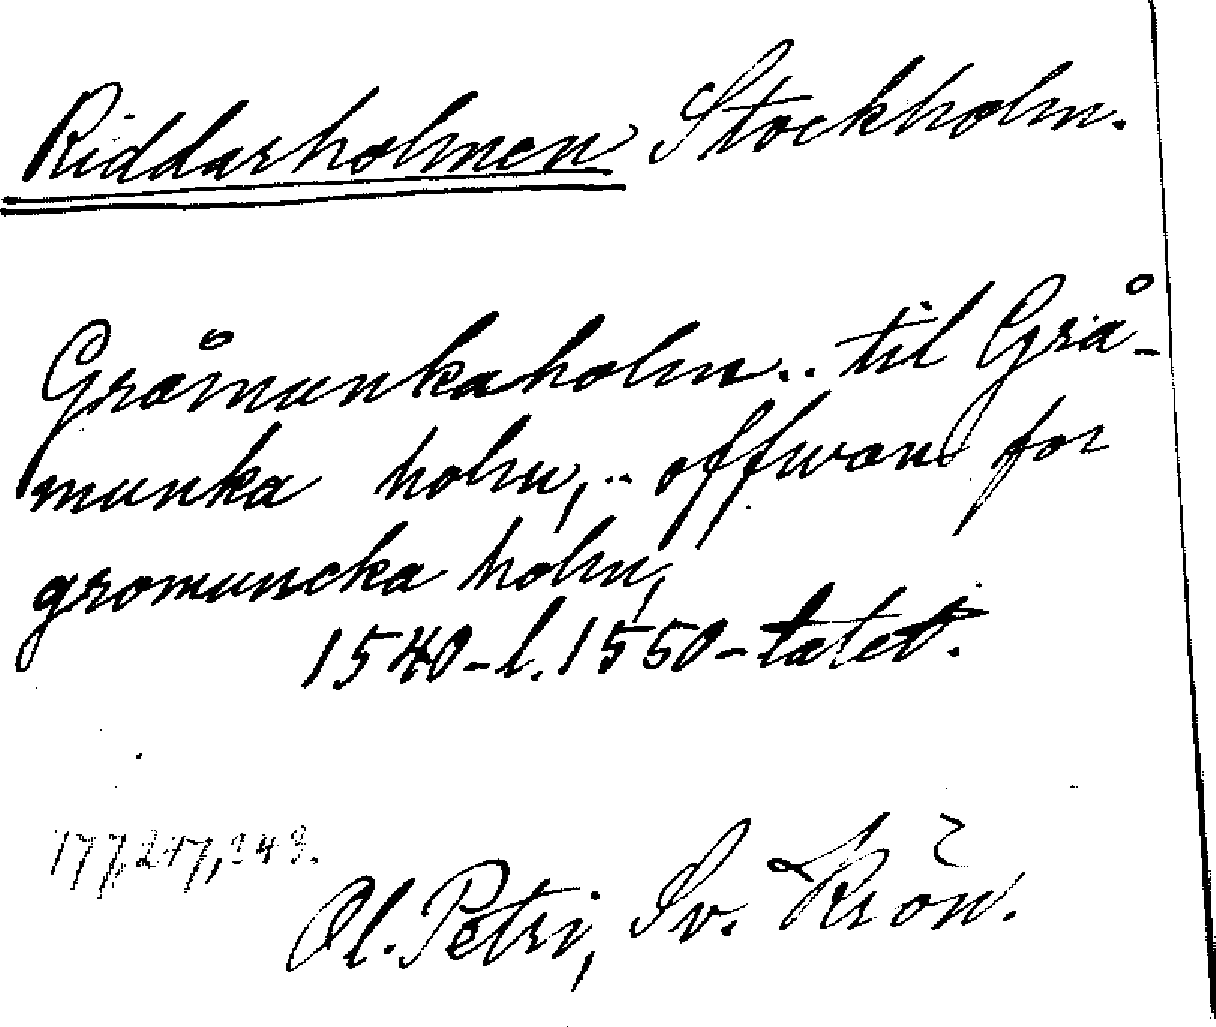 Riddarholmen Stockholm.
Gråmunkaholm.. til Grå-
munka holm,.. offwan for
gromuncka holm,
1540-l. 1550-talet.
177, 247, 249.
Ol. Petri, Sv. Krön.